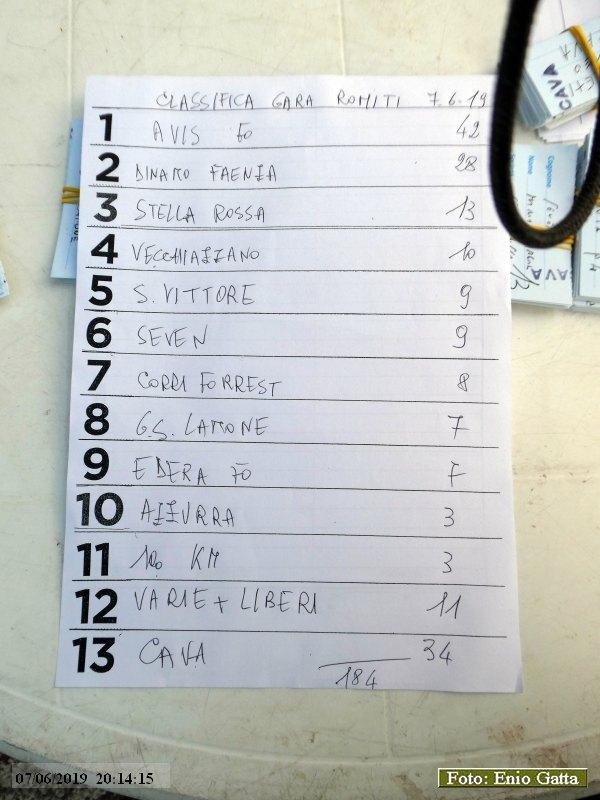 CLASSIFICA GARA ROMITI 7.6.19
1 AVIS FO 42
2 DINAMO FAENZA 28
3 STELLA ROSSA 13
4 VECCHIAZZANO 10
5 S. VITTORE 9
6 SEVEN 9
7 CORRI FORREST 8
8 G.S. LAMONE 7
9 EDERA FO 7
10 AZZURRA 3
11 100 KM 3
12 VARIE + LIBERI 11
13 CAVA 34
184
CAVA
Cognome
Nome
CAVA
07/06/2019 20:14:15
Foto: Enio Gatta